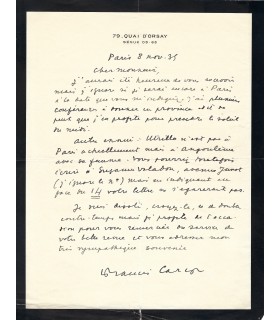 79, QUAI D'ORSAY
Paris 8 nov. 35
Cher Monsieur,
J'aurais été heureux de vous recevoir
mais j'ignore si je serai encore à Paris
à la date que vous m'indiquez. J'ai plusieurs
conférences à donner en province et
peut que j'en profite pour prendre le soleil
du midi.
Utrillo n'est pas à
Paris actuellement mais à Angoulême
avec sa femme. Vous pourrez
écrire à Suzanne Valadon, avenue Junot
(j'ignore le n°) mais en indiquant
face du 14 votre lettre ne s'égarerait pas.
Je suis désolé, croyez-le, de ce double
contre-temps mais je profite de l'occa
sion pour vous remercier du service de
votre belle revue et vous adresser mon
très sympathique souvenir
Francis Carco